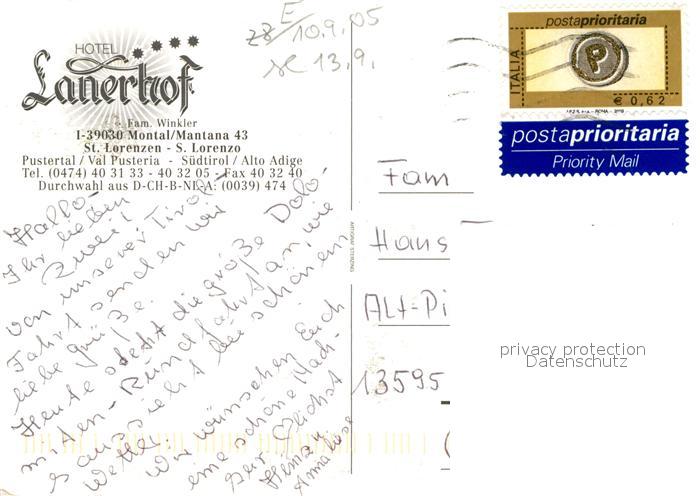 E
10.9.05
13.9.
HOTEL
Lanerhof
Fam. Winkler
I-39030 Montal/Mantana 43
St. Lorenzen - S. Lorenzo
Pustertal / Val Pusteria - Südtirol / Alto Adige
Tel. (0474) 40 31 33 - 40 32 05 - Fax 40 32 40
Durchwahl aus D-CH-B-NL-A: (0039) 474
Hallo-
Ihr lieben
zwei!
von unserer Tirol-
Fahrt senden wir
liebe Grüße.
Heute steht die große Dolo-
miten-Rundfahrt an, wie
es aussieht bei schönem
Wetter.
Wir wünschen Euch
eine schöne Nach-
herzlichst
Anna
ITALIA
postaprioritaria
P
€ 0,62
postaprioritaria
Priority Mail
Fam
Hans
Alt-Pi
13595
privacy protection
Datenschutz